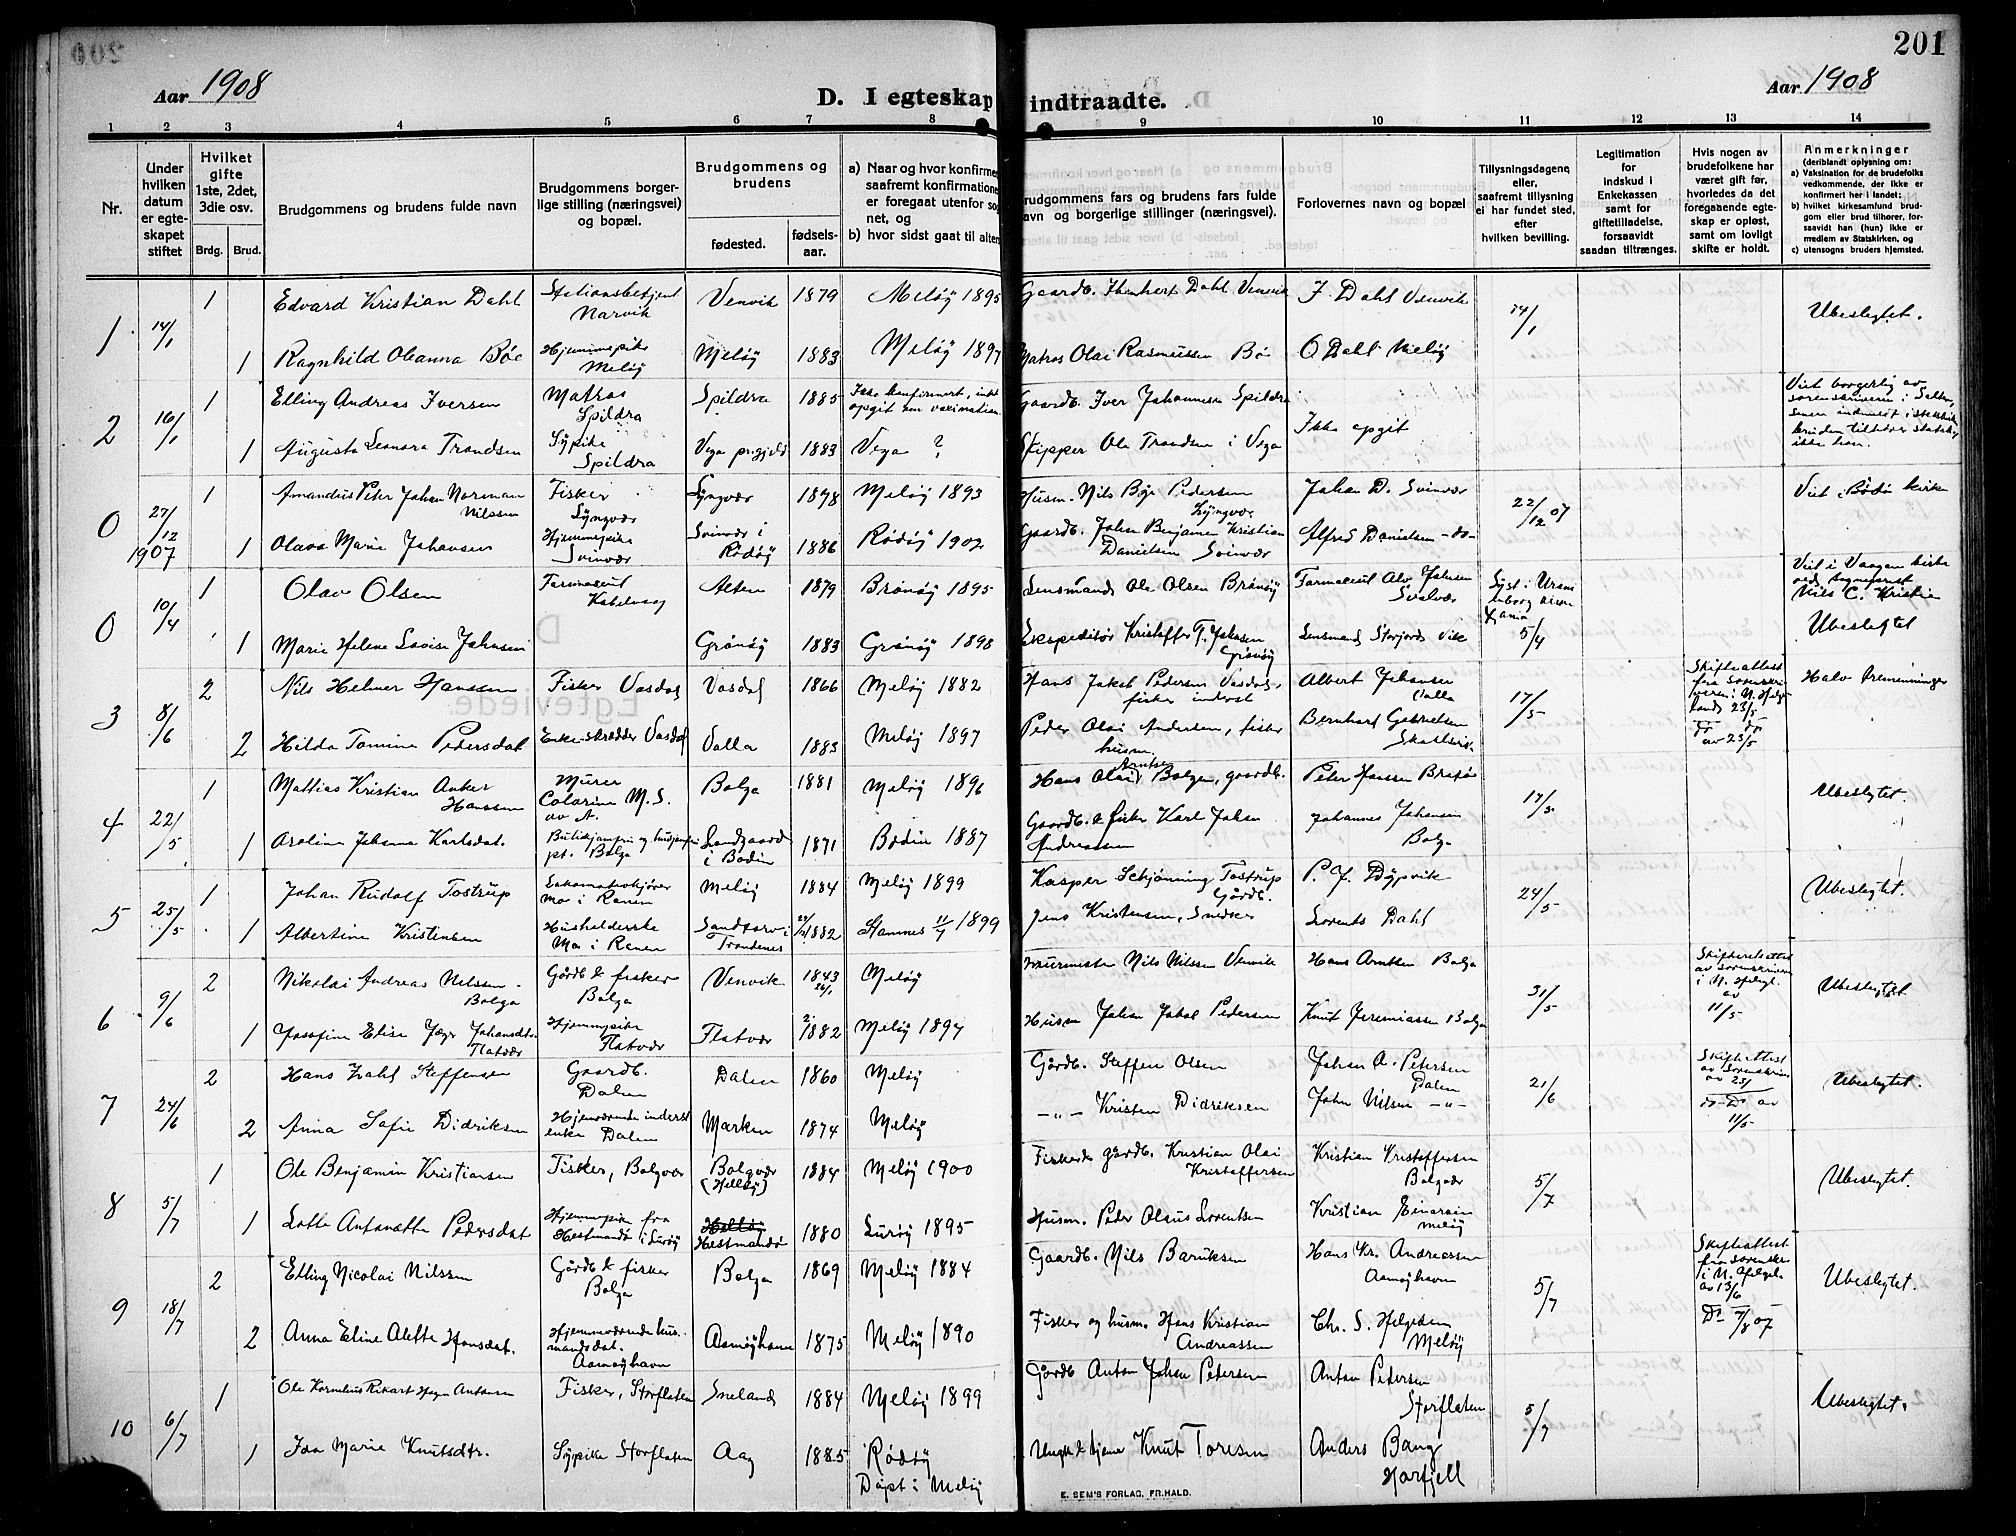 200
201
Aar 1908
D. I egteskap indtraadte.
Aar 1908
1 2 3 4 5 6 7 8 9 10 11 12 13 14
Nr.
Under hvilken datum er egteskapet stiftet
Hvilket gifte 1ste, 2det, 3die osv.
Brdg. Brud.
Brudgommens og brudens fulde navn
Brudgommens borgerlige stilling (næringsvei) og bopæl.
Brudgommens og brudens
fødested.
fødselsaar.
a) Naar og hvor konfirmer
saafremt konfirmationen
er foregaat utenfor sog
net, og
b) hvor sidst gaat til alters
Brudgommens fars og brudens fars fulde
navn og borgerlige stillinger (næringsvei).
Forlovernes navn og bopæl
Tillysningsdagene,
eller,
saafremt tillysning
ei har fundet sted,
efter
hvilken bevilling.
Legitimation
for
indskud i
Enkekassen
samt for
giftetilladelse,
forsaavidt
saadan tiltrænges.
Hvis nogen av
brudefolkene har
været gift før,
hvorledes da det
foregaaende egte-
skap er opløst,
samt om lovligt
skifte er holdt.
Anmerkninger
(deriblandt oplysning om:
a) Vaksination for de brudefolks
vedkommende, der ikke er
konfirmert her i landet;
b) hvilket kirkesamfund brud-
gom eller brud tilhører, for-
saavidt han (hun) ikke er
medlem av Statskirken, og
c) utensogns bruders hjemsted.
1 14/1 1 Edvard Kristian Dahl Stationsbetjent Narvik Venvik 1879 Meløy 1895 Gaardb. Dahl Venvik J. Dahl Venvik 14/1 Ubeslegtet.
1 Ragnhild Oleanna Bøe Hjemmepike Meløy Meløy 1883 Meløy 1897 Matros Olai Rasmussen Bø O Dahl Meløy
2 16/1 1 Elling Andreas Iversen Matros Spildra Spildra 1885 Ikke konfirmert, opgit om vaxination Gaardb. Iver Johannesen Spildra Ikke opgit Viet borgerlig av sorenskriveren i Salten,
1 Augusta Leonora Trondsen Sypike Spildra Vega prgjeld 1883 Vega ? Skipper Ole Trondsen i Vega ikke han.
0 27/12 1907 1 Amandius Peter Johan Norman Nilssen Fisker Lyngvær Lyngvær 1878 Meløy 1893 Husm. Nils Bye Pedersen Lyngvær Johan D. Svinvær 22/12 07 Viet i Bodø kirke
1 Olava Marie Johansen Hjemmepike Svinvær Svinvær i Rødøy 1886 Rødøy 1902 Gaardb. Johan Benjamin Kristian Danielsen Svinvær Alfred Danielsen -do-
0 10/4 1 Olav Olsen Farmaceut Kabelvaag Alten 1879 Brønøy 1895 Lensmand Ole Olsen Brønøy Farmaceut Alv Johnsen Svolvær Lyst i Viet i Vaagan kirke ved sogneprest Nils C. Kristie
1 Marie Helene Lovise Johnsen Grønøy 1883 Grønøy 1898 Ekspeditør Kristoffer T. Johnsen Grønøy Lensmand Storjord Vik 5/4 Ubeslegtet
3 8/6 2 Nils Helmer Hanssen Fisker Vasdal Vasdal 1866 Meløy 1882 Hans Jakob Pedersen Vasdal fisker inderst Albert Johansen Valla 17/5 Skifteattest fra Sorenskriveren i N. Helgeland 23/5 Halv Fremenninger
2 Hilda Tomine Pedersdat Enke skrædder Vasdal Valla 1883 Meløy 1897 Peder Olai Andersen, fisker husm. Bernhard Gabrielsen do av 23/5
4 22/5 1 Mattias Kristian Anker Hanssen Murer Bolga 1881 Meløy 1896 Hans Olai Arntsen Bolgen, gaardb. Peter Hansen 17/5 Ubeslegtet.
1 Aroline Johanna Karlsdat. Bolga Sandgaard i Bodin 1871 Bodin 1887 Gaardb. & fisker Karl Johan Andreassen Johannes Johansen Bolga
5 25/5 1 Johan Rudolf Tostrup Lokomotivkjører Mo i Ranen Meløy 1884 Meløy 1899 Kasper Schjønning Tostrup Gårdb. P. J. Dypvik 24/5 Ubeslegtet.
1 Albertine Kristensen Husholderske Mo i Ranen Sandtorv i Trondenes 1882 Stamnes 11/7 1899 Jens Kristensen, Snedker Lorents Dahl
6 9/6 2 Nikolai Andreas Nilssen Bolga Gårdb & fisker Bolga Venvik 1843 26/1 Meløy Nils Nilssen Venvik Hans Arntsen Bolga 31/5 av 11/5 Ubeslegtet
1 Josefine Elise Jæger Johansdtr. Flatvær Hjemmepike Flatvær Flatvær 1882 Meløy 1897 Husm Johan Jakob Pedersen Knut Jeremiassen Bolga
7 24/6 2 Hans Dahl Steffensen Gaardb. Dalen Dalen 1860 Meløy Gårdb. Steffen Olsen Johan A. Petersen Dalen 21/6 Skifteattest av Sorenskriv Ubeslegtet.
2 Anna Sofie Didriksen Hjemværende inderst enke Dalen Marken 1874 Meløy —„— Kristen Didriksen John Nilsen —„— Do-Do av 11/5
8 5/7 1 Ole Benjamin Kristiansen Fisker, Bolgvær Bolgvær 1884 Meløy 1900 Fisker & gårdb. Kristian Olai Kristoffersen Kristian Kristoffersen Bolgvær 5/7 Ubeslegtet.
1 Lotte Antonette Pedersdat Hjemmepike fra Hestmandø i Lurøy Hestmandø 1880 Lurøy 1895 Husm. Peder Olaus Lorentsen Kristian Einersen Meløy
9 18/7 2 Elling Nicolai Nilssen Gårdb & fisker Bolga Bolga 1869 Meløy 1884 Gaardb. Nils Baruksen Hans Kr. Andreassen Aamøyhavn 5/7 Skifteattest fra Sorenskr i N. Helgel. av 13/6 Ubeslegtet.
2 Anna Eline Alette Hansdat. Hjemmeværende husmandsdat. Aamøyhavn Aamøyhavn 1875 Meløy 1890 Fisker og husm. Hans Kristian Andreassen Chr. S. Helgesen Meløy Do 7/8 07
10 6/7 1 Ole Kornelius Rikart Hagen Antonsen Fisker, Storflaten Sneland 1884 Meløy 1899 Gårdb Anton Johan Petersen Anton Pedersen Storflaten 5/7 Ubeslegtet.
1 Ida Marie Knutsdtr. Sypike Storflaten Aag 1885 Rødøy Døpt i Meløy Knut Toresen Anders Bang Horfjell
E. SEM'S FORLAG, FR.HALD.